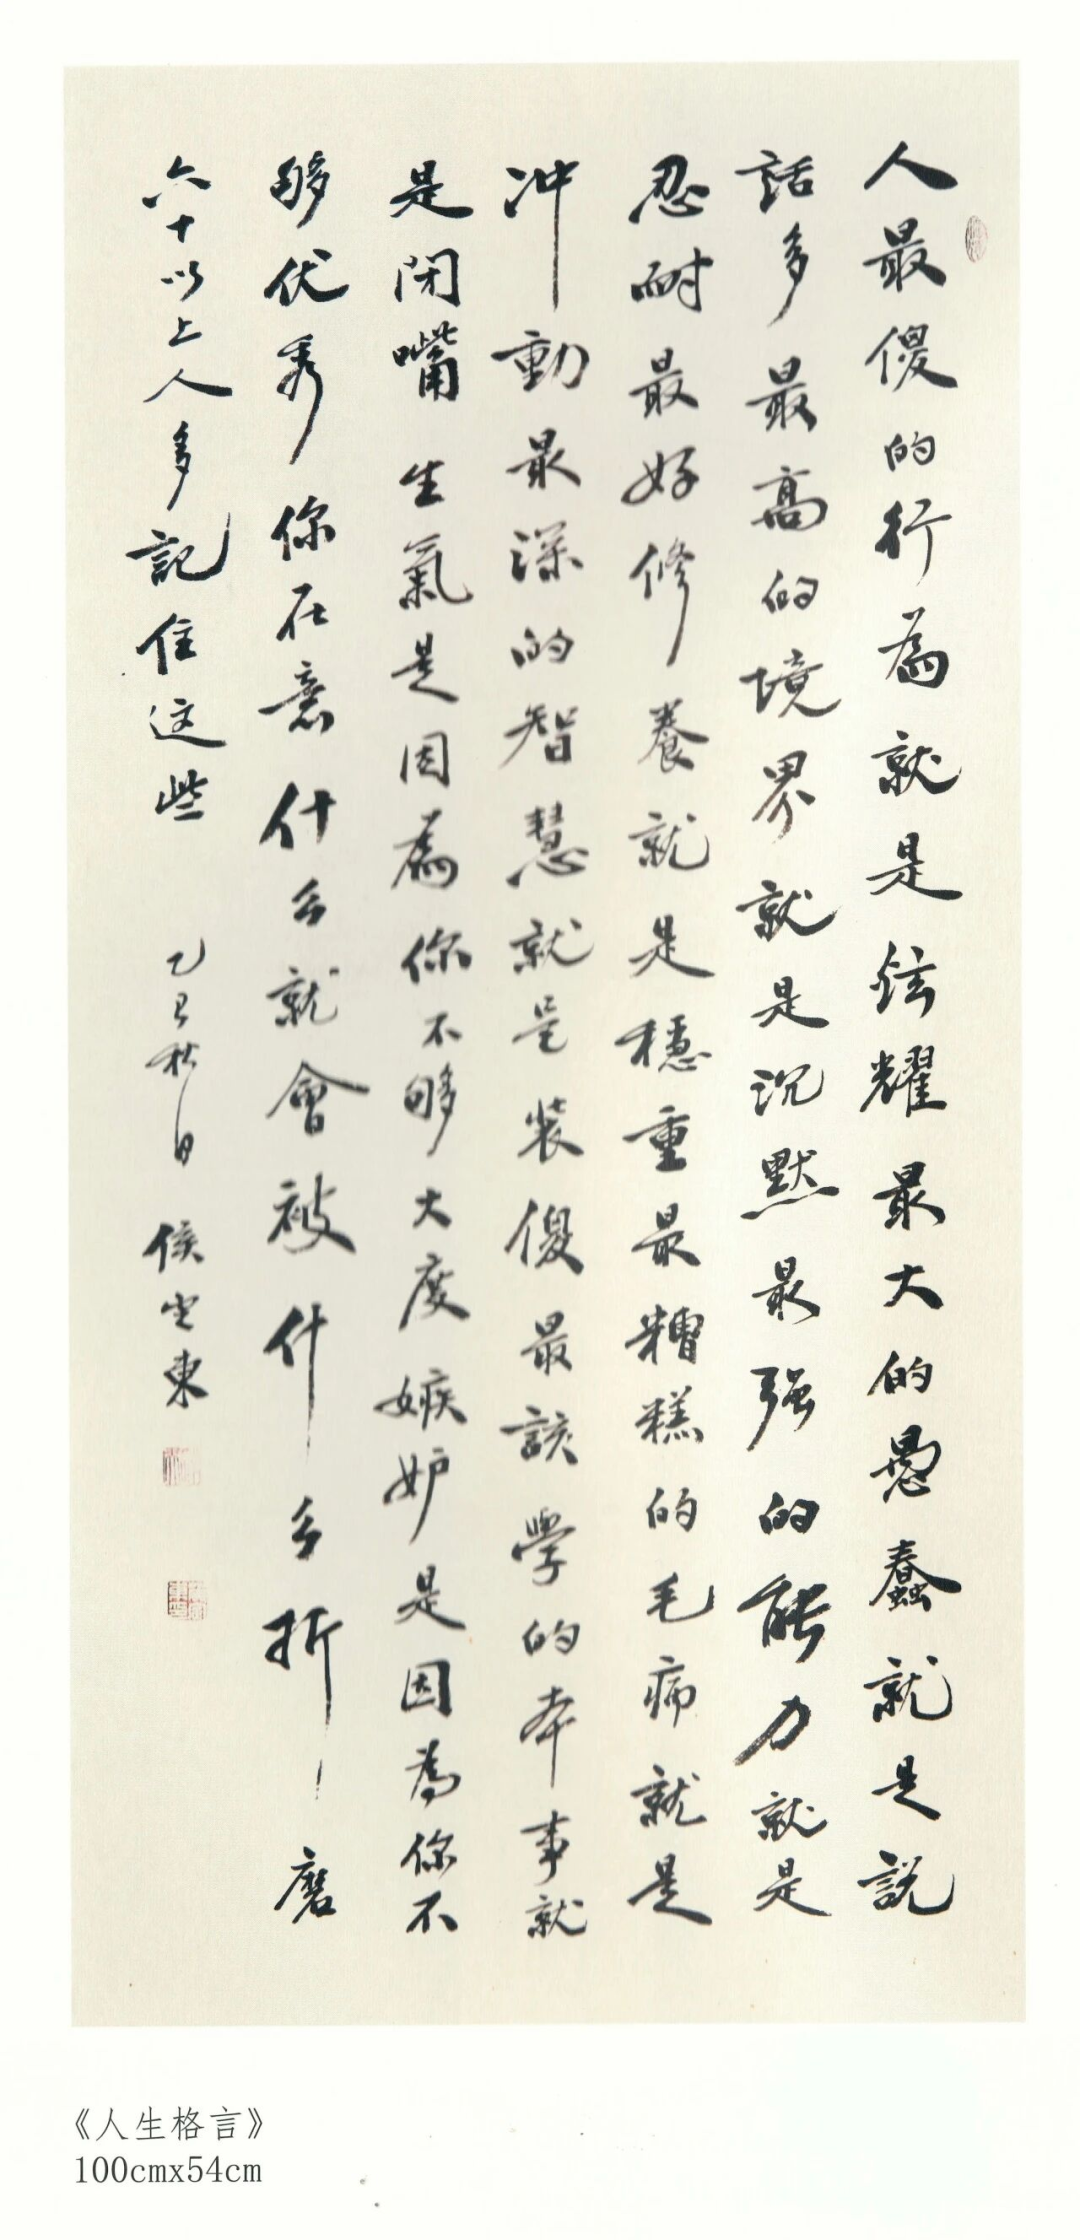 人最傻的行為就是炫耀最大的愚蠢就是說
話多最高的境界就是沉默最强的能力就是
忍耐最好修養就是穩重最糟糕的毛病就是
冲動最深的智慧就是裝傻最該學的本事就
是閉嘴生氣是因為你不够大度嫉妒是因為你不
够优秀你在意什么就會被什么折磨
六十以上人多記住這些
乙巳秋日 侯 東
《人生格言》
100cmx54cm